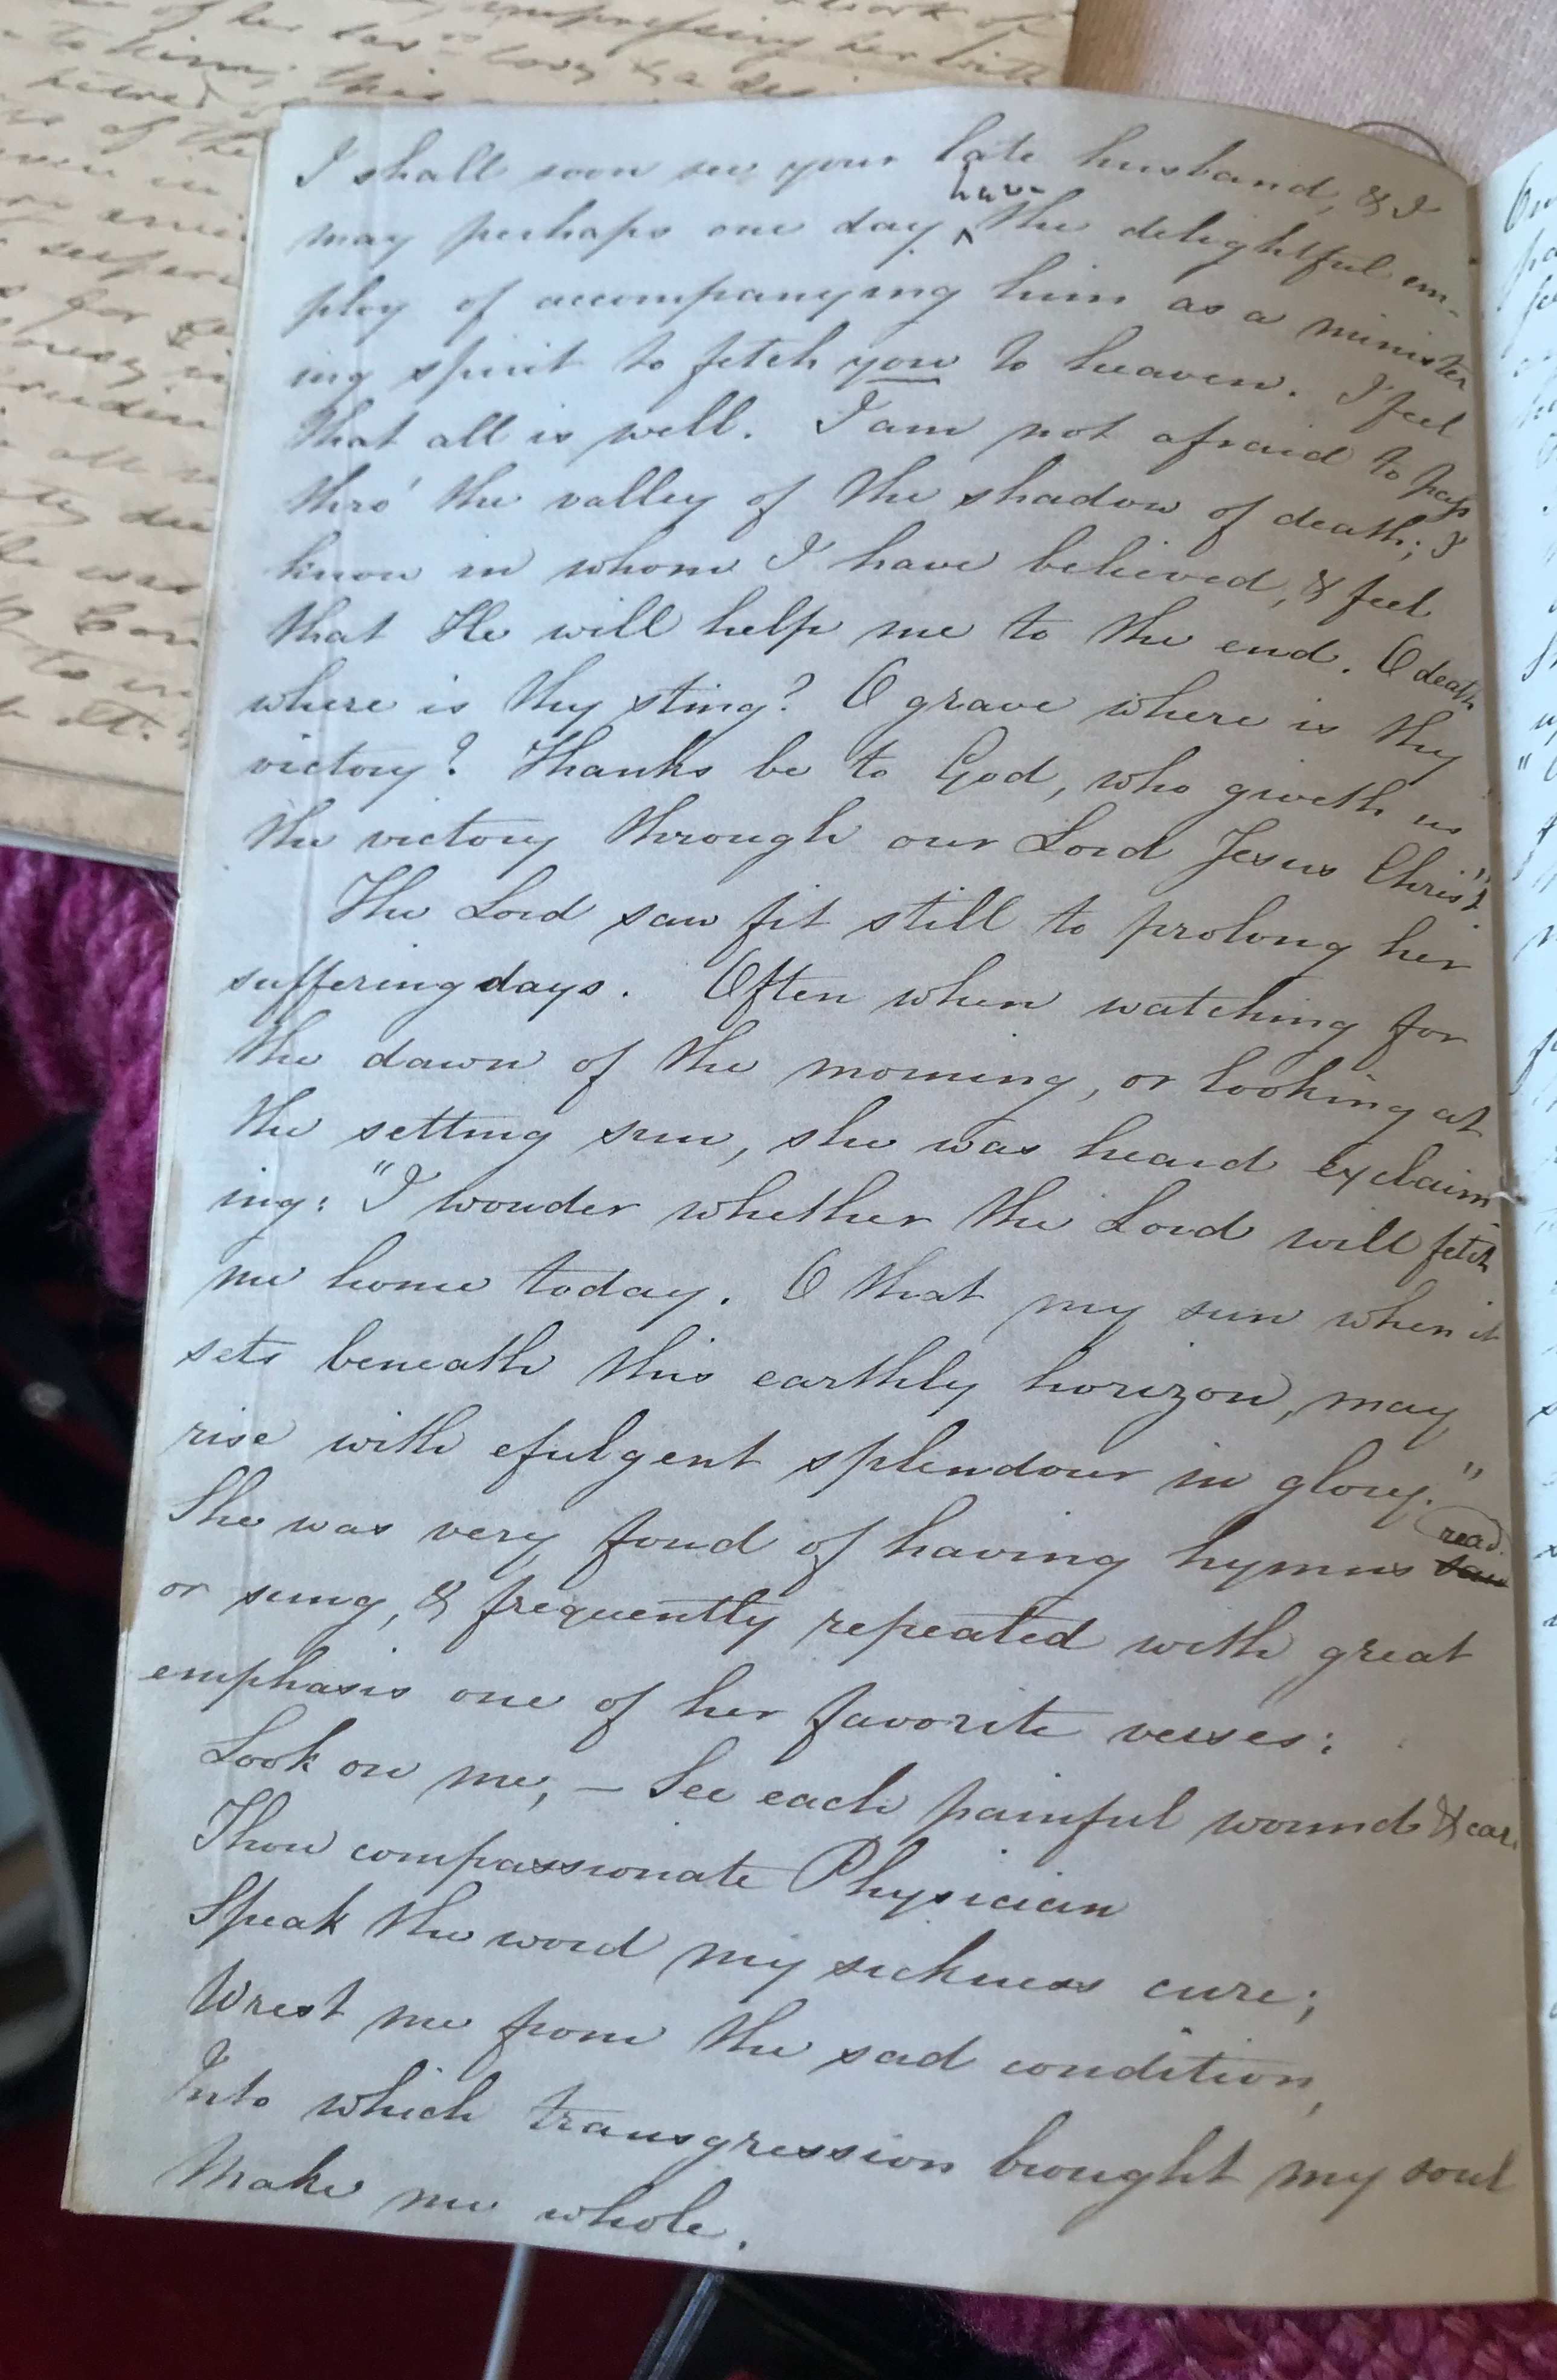 I shall soon see your late husband, & I
may perhaps one day have the delightful em-
ploy of accompanying him as a minister
ing spirit to fetch you to heaven. I feel
that all is well. I am not afraid to pass
thro' the valley of the shadow of death; I
know in whom I have believed, & feel
that He will help me to the end. O death
where is thy sting? O grave where is thy
victory? Thanks be to God, who giveth us
the victory through our Lord Jesus Christ"
The Lord saw fit still to prolong her
suffering days. Often when watching for
the dawn of the morning, or looking at
the setting sun, she was heard exclaim-
ing: "I wonder whether the Lord will fetch
me home today. O that my sun when it
sets beneath this earthly horizon, may
rise with efulgent splendour in glory."
She was very fond of having hymns read
or sung, & frequently repeated with great
emphasis one of her favorite verses:
Look on me, – See each painful wound &
Thou compassionate Physician
Speak the word my sickness cure;
Wrest me from the sad condition,
Into which transgression brought my soul
Make me whole.